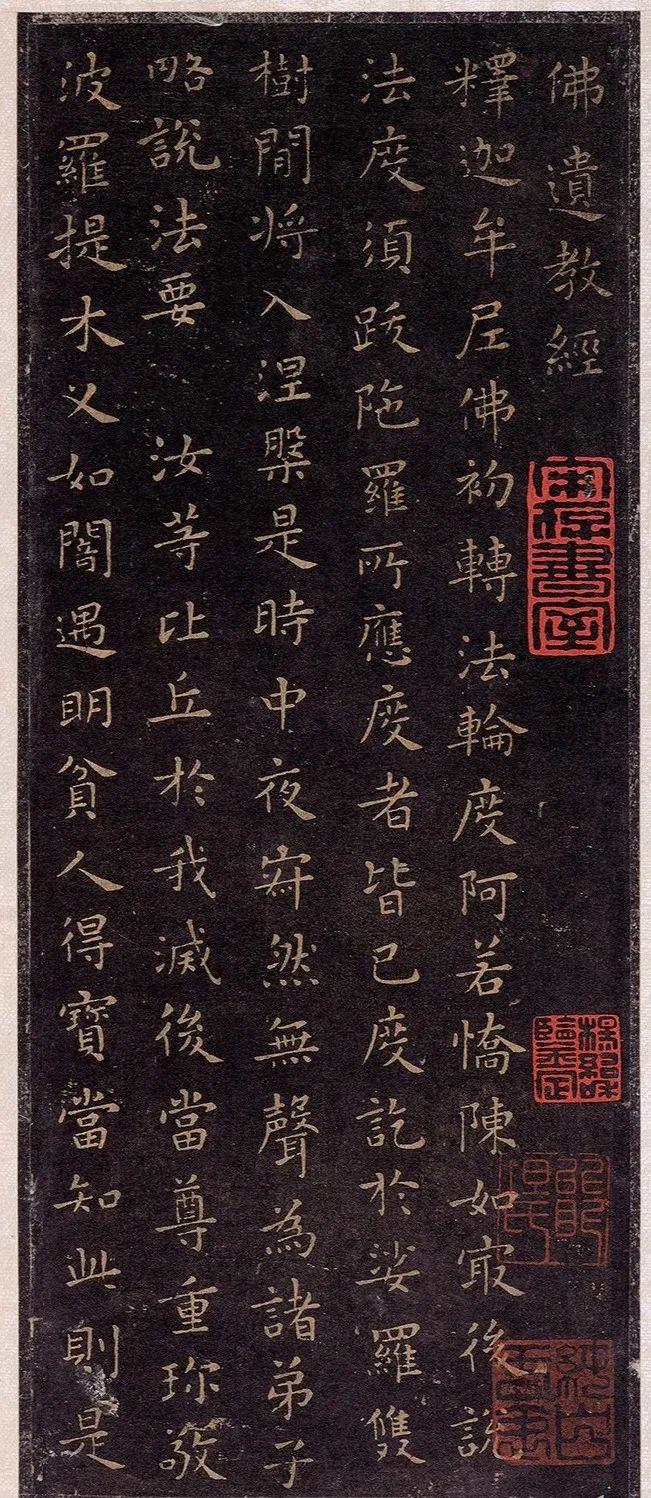 佛遺教經
釋迦牟尼佛初轉法輪度阿若憍陳如冣後說
法度須跋陁羅所應度者皆已度訖於娑羅雙
樹間將入涅槃是時中夜寂然無聲為諸弟子
略說法要 汝等比丘於我滅後當尊重珎敬
波羅提木叉如闇遇明貧人得寶當知此則是